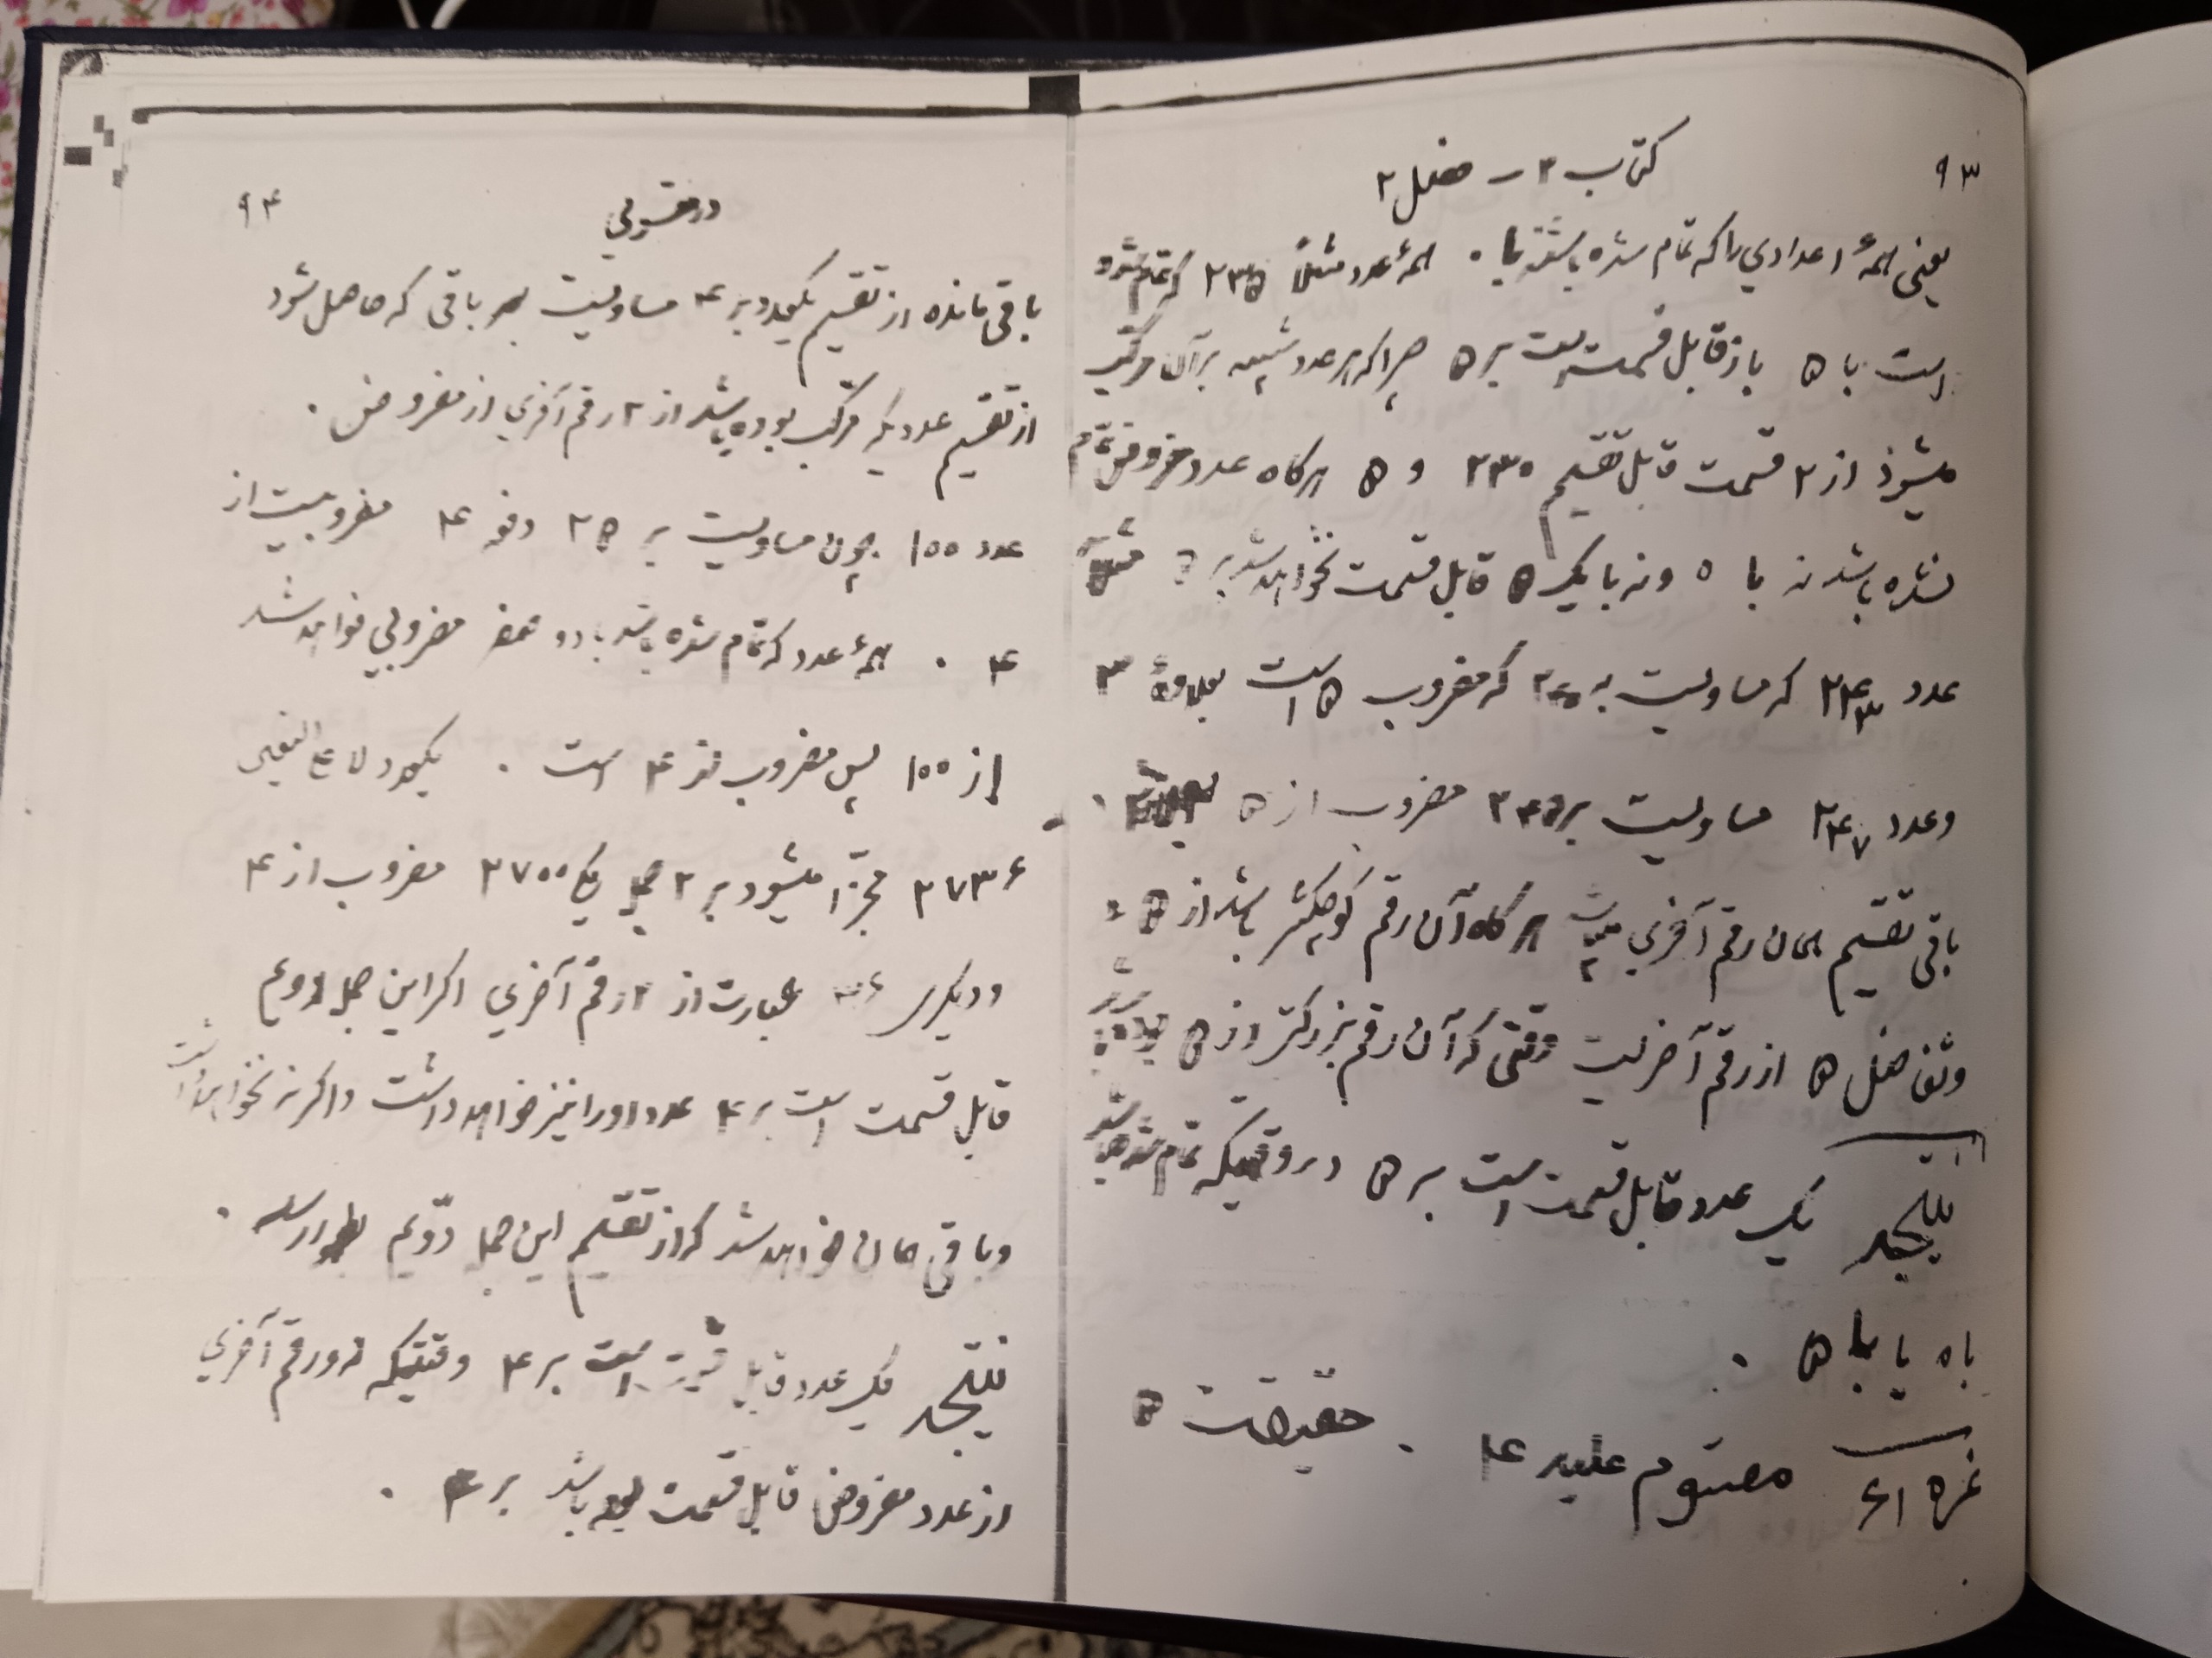 ۹۳
کتاب ۲ – فصل ۲
یعنی همهٔ اعدادی را که تمام شده باشند با ۰ همهٔ عدد مثلاً ۲۳۵ که تمام شده
است با ۵ باز قابل قسمت است بر ۵ چراکه هر عدد شبیه بر آن مرکب
میشود از ۲ قسمت قابل تقسیم ۲۳۰ و ۵ هرگاه عدد مفروض تمام
نشده باشد نه با ۰ و نه با یک ۵ قابل قسمت نخواهد شد بر ۵
عدد ۲۴۳ که مساویست به ۲۴۰ که مضروب ۵ است بعلاوهٔ ۳
وعدد ۲۴۷ مساویست بر ۲۴۵ مضروب از ۵
باقی تقسیم همان رقم آخری است هرگاه آن رقم کوچکتر باشد از ۵
وتفاضل ۵ از رقم آخریست وقتی که آن رقم بزرگتر از ۵
نتیجه یک عدد قابل قسمت است بر ۵ در وقتیکه تمام شده باشد
با ۰ یا با ۵ .
نمره ۶۱ مقسوم علیه ۴ . حقیقت ۵
۹۴
در مقسومی
باقی مانده از تقسیم یکعدد بر ۴ مساویست بهر باقی که حاصل شود
از تقسیم عددیکه مرکب بوده باشد از ۲ رقم آخری از مفروض .
عدد ۱۰۰ چون مساویست بر ۲۵ دفعه ۴ مضروبیست از
۴ . همهٔ عدد که تمام شده باشد با دو صفر مضروبی خواهد شد
از ۱۰۰ پس مضروب نیز ۴ است . یکعدد لا علی التعیین
۲۷۳۶ مجزّا میشود بر ۲ جمله یکی ۲۷۰۰ مضروب از ۴
ودیگری ۳۶ عبارت از ۲ رقم آخری اگر این جمله دویم
قابل قسمت است بر ۴ عدد او را نیز خواهد داشت و اگر نه نخواهد داشت
وباقی همان خواهد شد که از تقسیم این جمله دوّیم
نتیجه یک عدد قابل قسمت است بر ۴ وقتیکه دو رقم آخری
از عدد مفروض قابل قسمت بوده باشد بر ۴ .